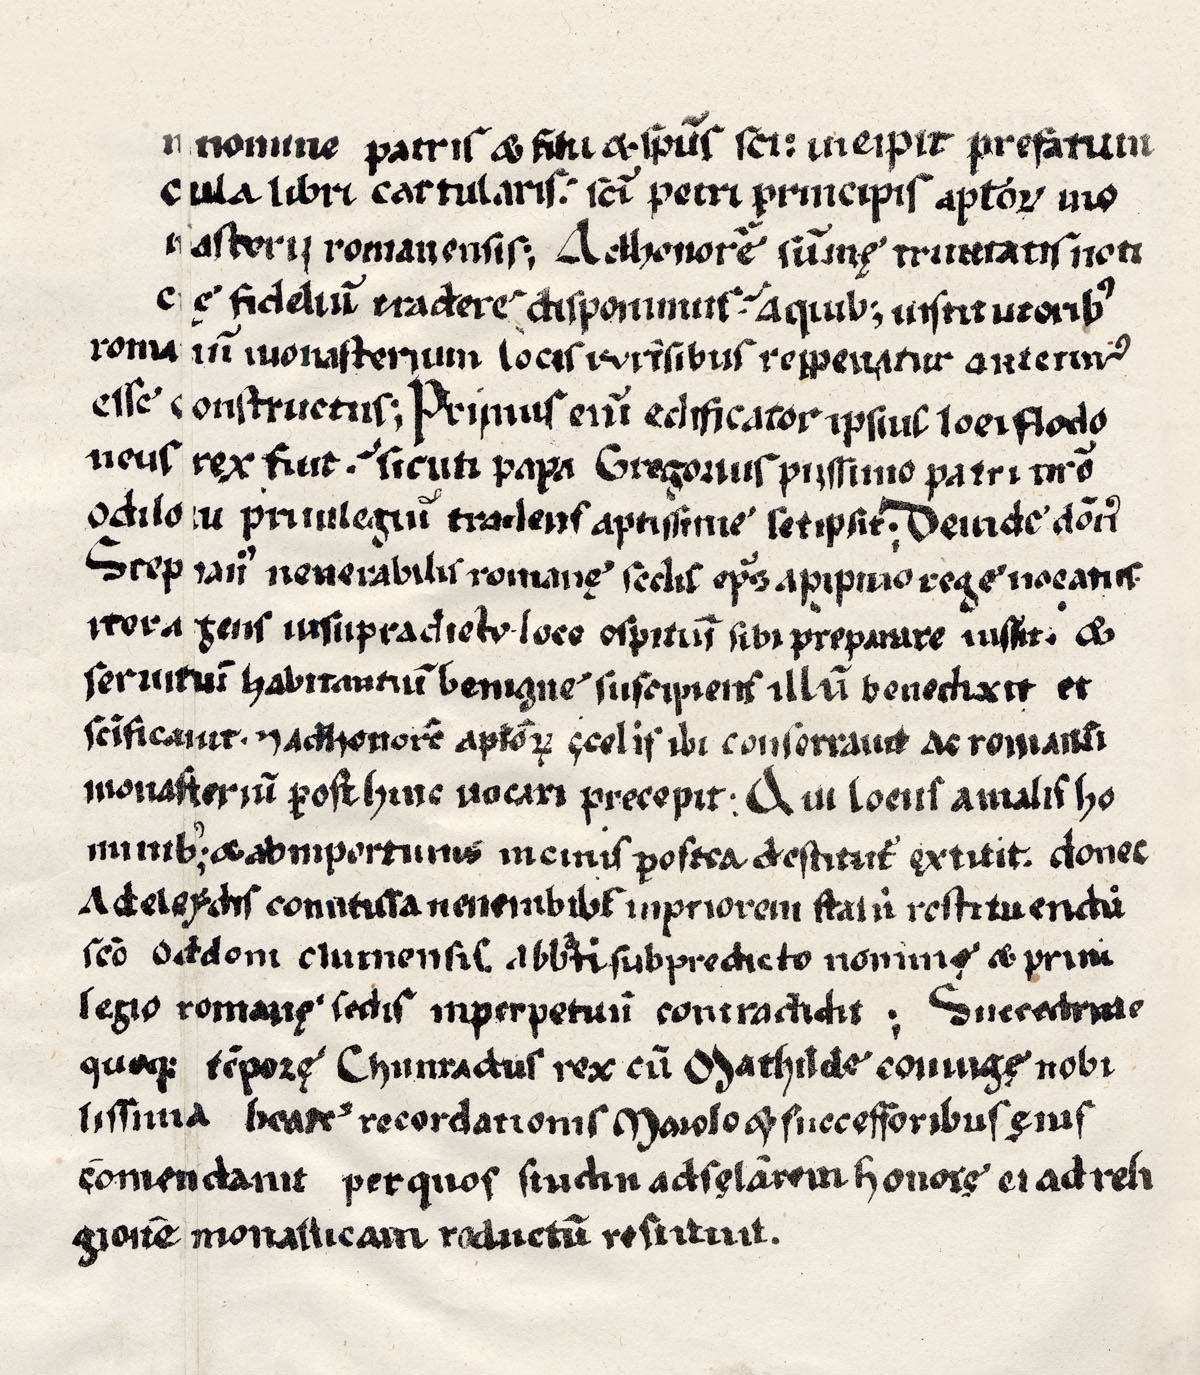 n nomine patris & filii & spūs sci: incipit prefatiun
cula libri cartularis: sci petri principis aptoꝝ mo
nasterij romanensis; Ad honorē sūmę trinitatis noti
cię fidelıū tradere disponimus. Aquib; institutorib᾽
romanū monasterıum locis
esse constructus; Primus enī edificator ipsius loci flodo
neus rex fuit. sicuti papa Gregorius pijssimo patri nrō
odiloni priuilegiū tradens aptissime scripsit. Deinde dōn᾽
Stephan᾽ uenerabilis romanę sedis ep̄s apipino rege uocatus
itera gens insupradicto loco ospitiū sibi preparare iussit. &
seruitiū habitantiū benigne suscipiens illū benedixit et
scīficauit. 7 adhonorē aptōꝝ ęcclis ibi consecrauit Ac romansi
monasteriū post hinc uocari precepit: Qui locus amalis ho
minib᾽; & abinportunis uicinis postea destitut᾽ extitit. donec
Adeleydis comitissa uenerabilis inpriorem statū restituendū
scō Oddoni cluniensis abbti subpredicto nominę & priui
legio romanę sedis inperpetuū contradidit ; Succedente
quoq; tēporę Chunradus rex cū Mathilde coniugę nobi
lissima beate recordationis Maiolo & successoribus ęius
comendauit per quos studiu
gionē monasticam reductū restituit.